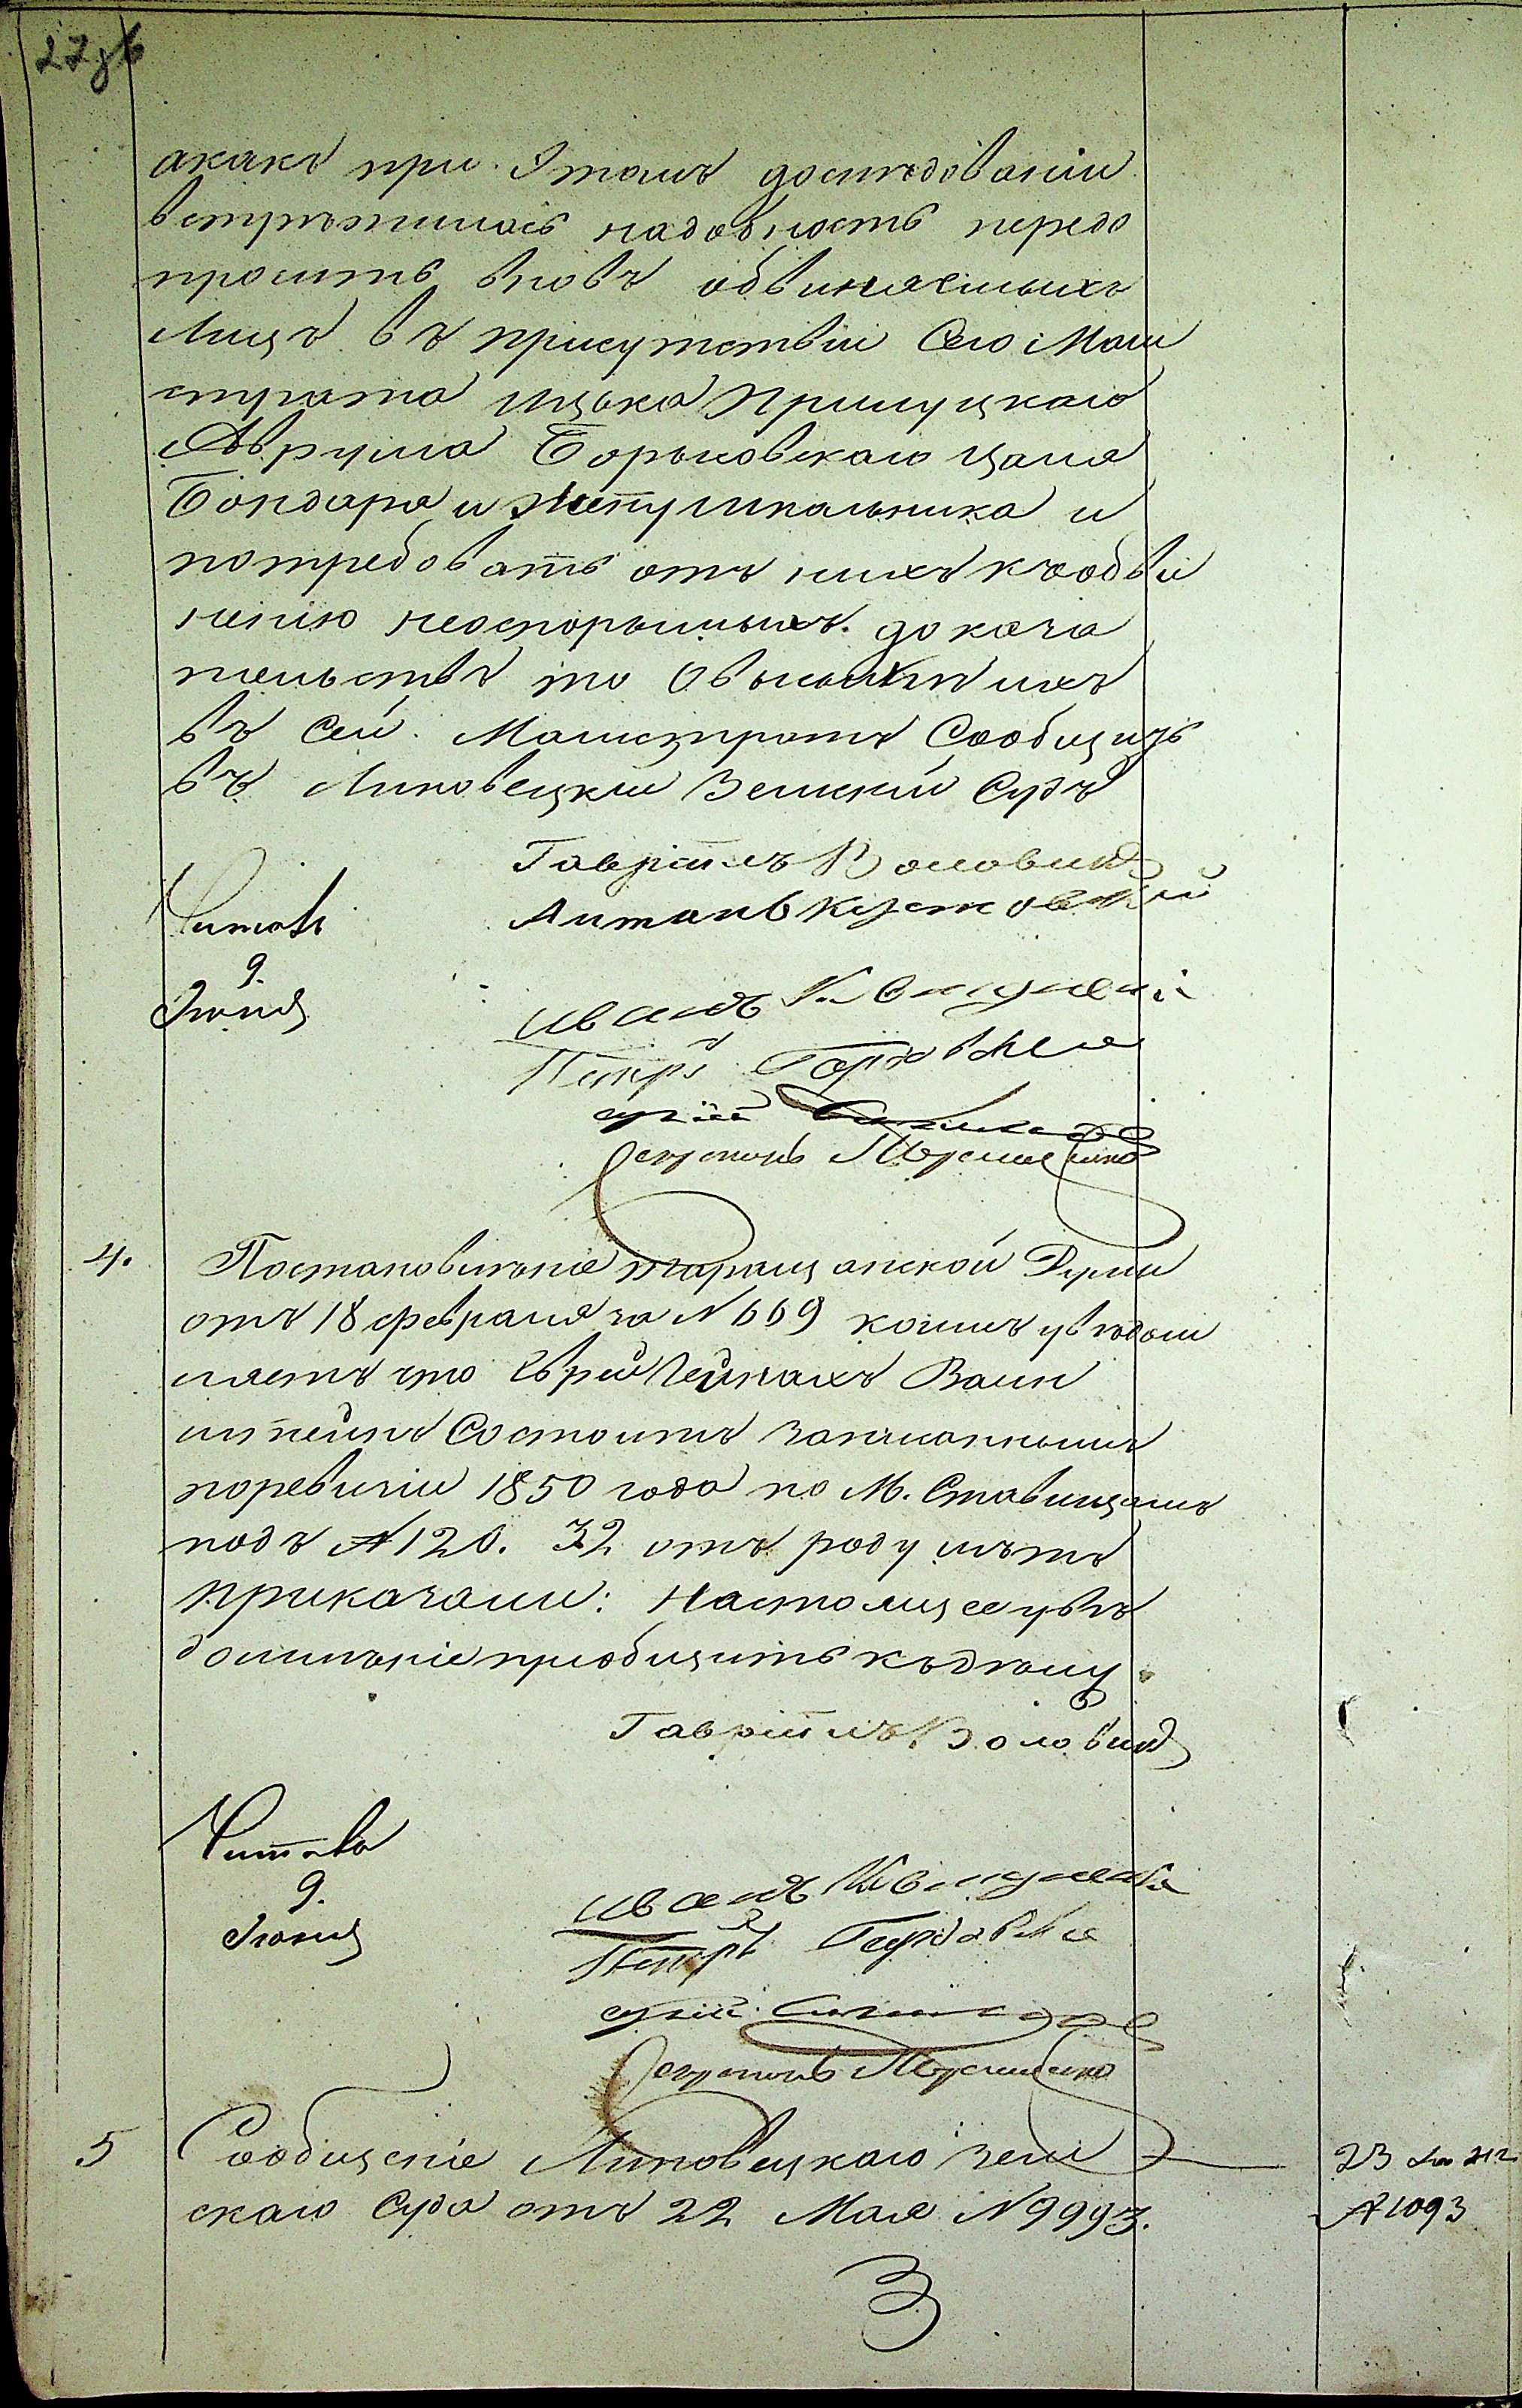 27 об
акакъ при этомъ дослѣдованіи
встрѣтилась надобность передо
просить вновь обвиняемыхъ
Лицъ въ присутствіи Сего Маги
страта Ицька Прилуцкаго
Аврума Борковскаго Цаля
Бондаря и Шепупикальника и
потребовать отъ нихъ къ обви
ненію неоспоримыхъ доказа
тельствъ то О высылкѣ ихъ
въ Сей Магистратъ Сообщить
въ Липовецкій Земскій Судъ
Гавріилъ Воловикъ
Антонъ
Читалъ
9.
Іюня
Иванъ
Петръ
Секретарь
4. Постановленіе Таращанской Думы
отъ 18 февраля за N 669 коимъ увѣдом
ляетъ что Еврей Пейсахъ Ваин
штейнъ Состоитъ записаннымъ
поревизіи 1850 года по М. Ставищамъ
подъ N 120. 32 отъ роду лѣтъ
приказали: Настоящее увѣ
домленіе пріобщить къ дѣлу.
Гавріилъ Воловикъ
Читалъ
9.
Іюня
Иванъ
Петръ
Секретарь
5 Сообщеніе Липовецкаго зем
скаго Суда отъ 22 Мая N 9993.
23
N 1093